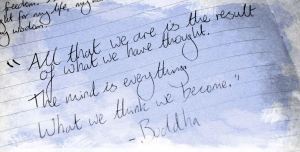 freedom.
ght for my life, my
my wisdom.
"All that we are is the result
of what we have thought.
The mind is everything.
What we think we become."
- Buddha